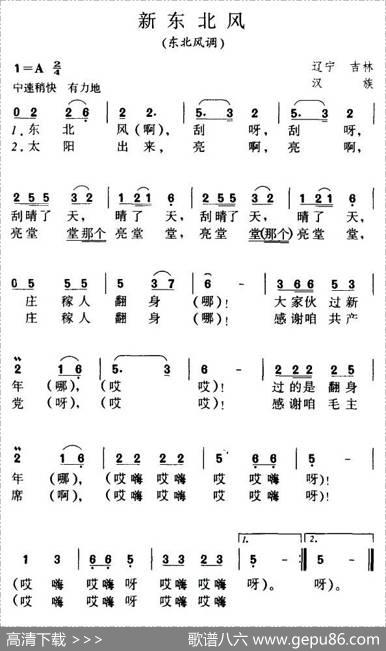 新东北风
(东北风调)
1=A 2/4
辽宁 吉林
中速稍快 有力地
汉 族
0 2 2 6 | 2 2. | 5. 3 3 | 5. 3 3 |
1.东 北 风(啊), 刮 呀, 刮 呀,
2.太 阳 出来, 亮 啊, 亮 啊,
2 5 5 3 2 | 1 2 1 6 | 2 5 5 3 2 | 1 2 1 6 |
刮晴了 天, 晴了 天, 刮晴了 天, 晴了 天,
亮堂 堂那个 亮堂 堂, 亮堂 堂(那个) 亮堂 堂,
0 5 5 5 | 5 3 7 | 6 - | 3 6 6 5 |
庄 稼人 翻 身 (哪)! 大家伙 过新
庄 稼人 翻 身 (哪)! 感谢咱 共产
2 1 6 | 5. 3 | 6 - | 2 2 2 2 5 |
年 (哪), (哎 哎)! 过的是 翻身
党 (呀), (哎 哎)! 感谢咱 毛主
2 1 6 | 2 2 2 2 | 5 6 6 | 5 - |
年 (哪), (哎嗨 哎嗨 哎 哎嗨 呀)!
席 (啊), (哎嗨 哎嗨 哎 哎嗨 呀)!
1. 2.
1 3 | 6 6 5 | 2 3 2 3 | 5 - :| 5 - ||
(哎 嗨 哎嗨呀 哎嗨 哎嗨 呀)。 呀)。
(哎 嗨 哎嗨 哎嗨 哎嗨
高清下载 >>>
歌谱八六 www.gepu86.com